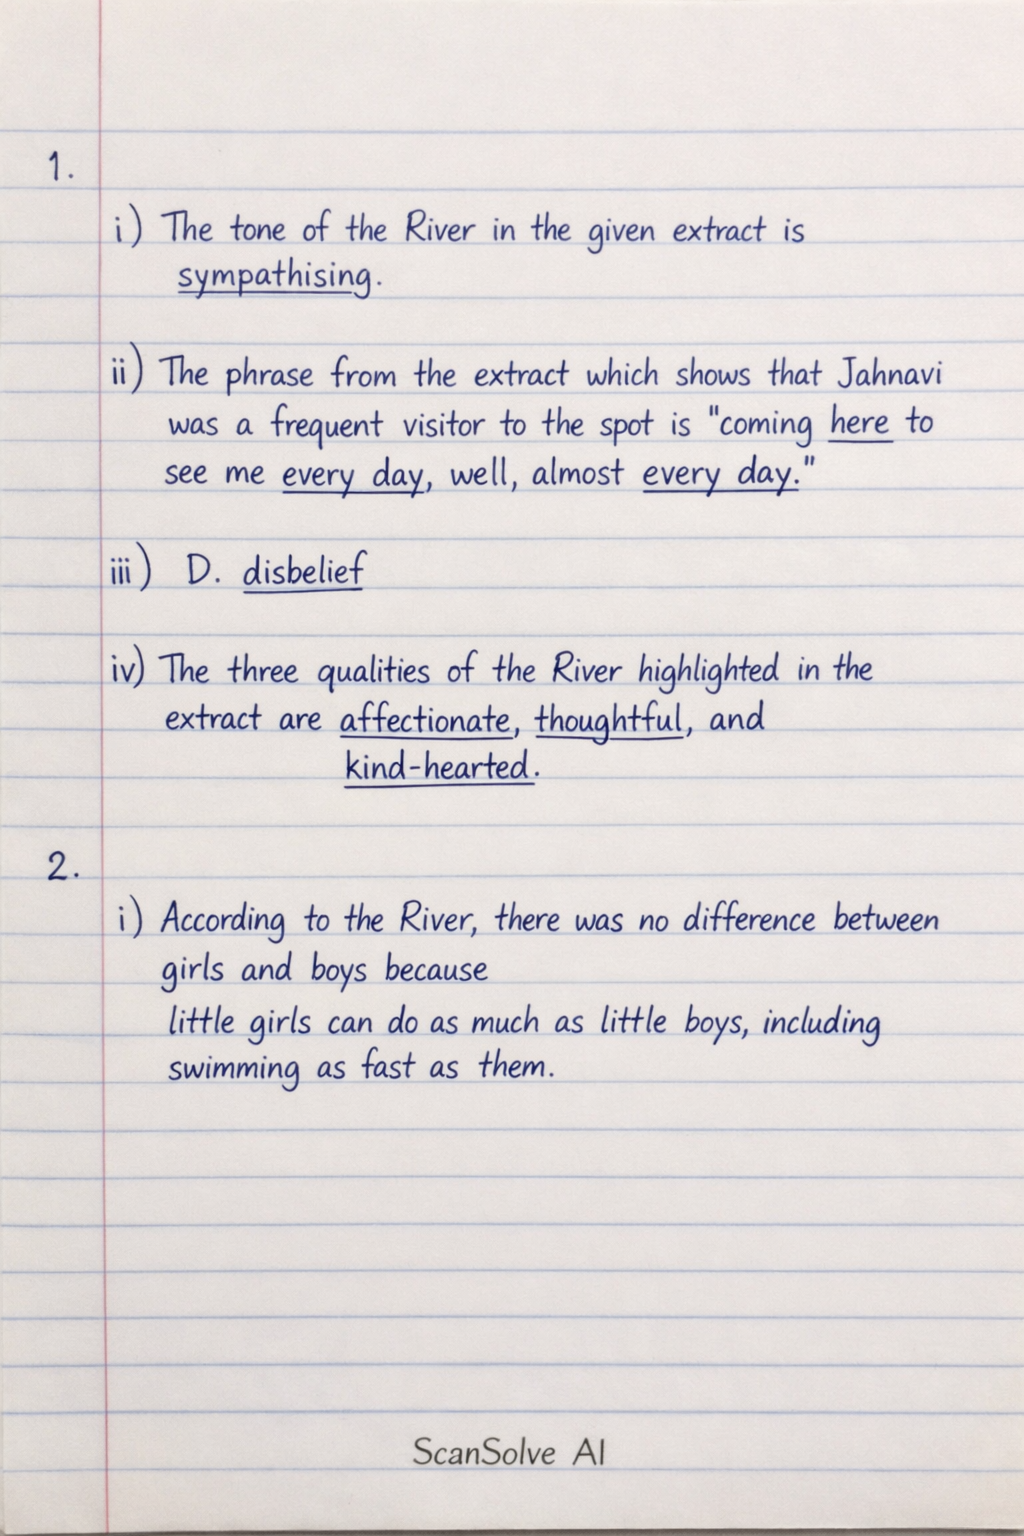 1.
i) The tone of the River in the given extract is
sympathising.
ii) The phrase from the extract which shows that Jahnavi
was a frequent visitor to the spot is "coming here to
see me every day, well, almost every day."
iii) D. disbelief
iv) The three qualities of the River highlighted in the
extract are affectionate, thoughtful, and
kind-hearted.
2.
i) According to the River, there was no difference between
girls and boys because
little girls can do as much as little boys, including
swimming as fast as them.
ScanSolve AI